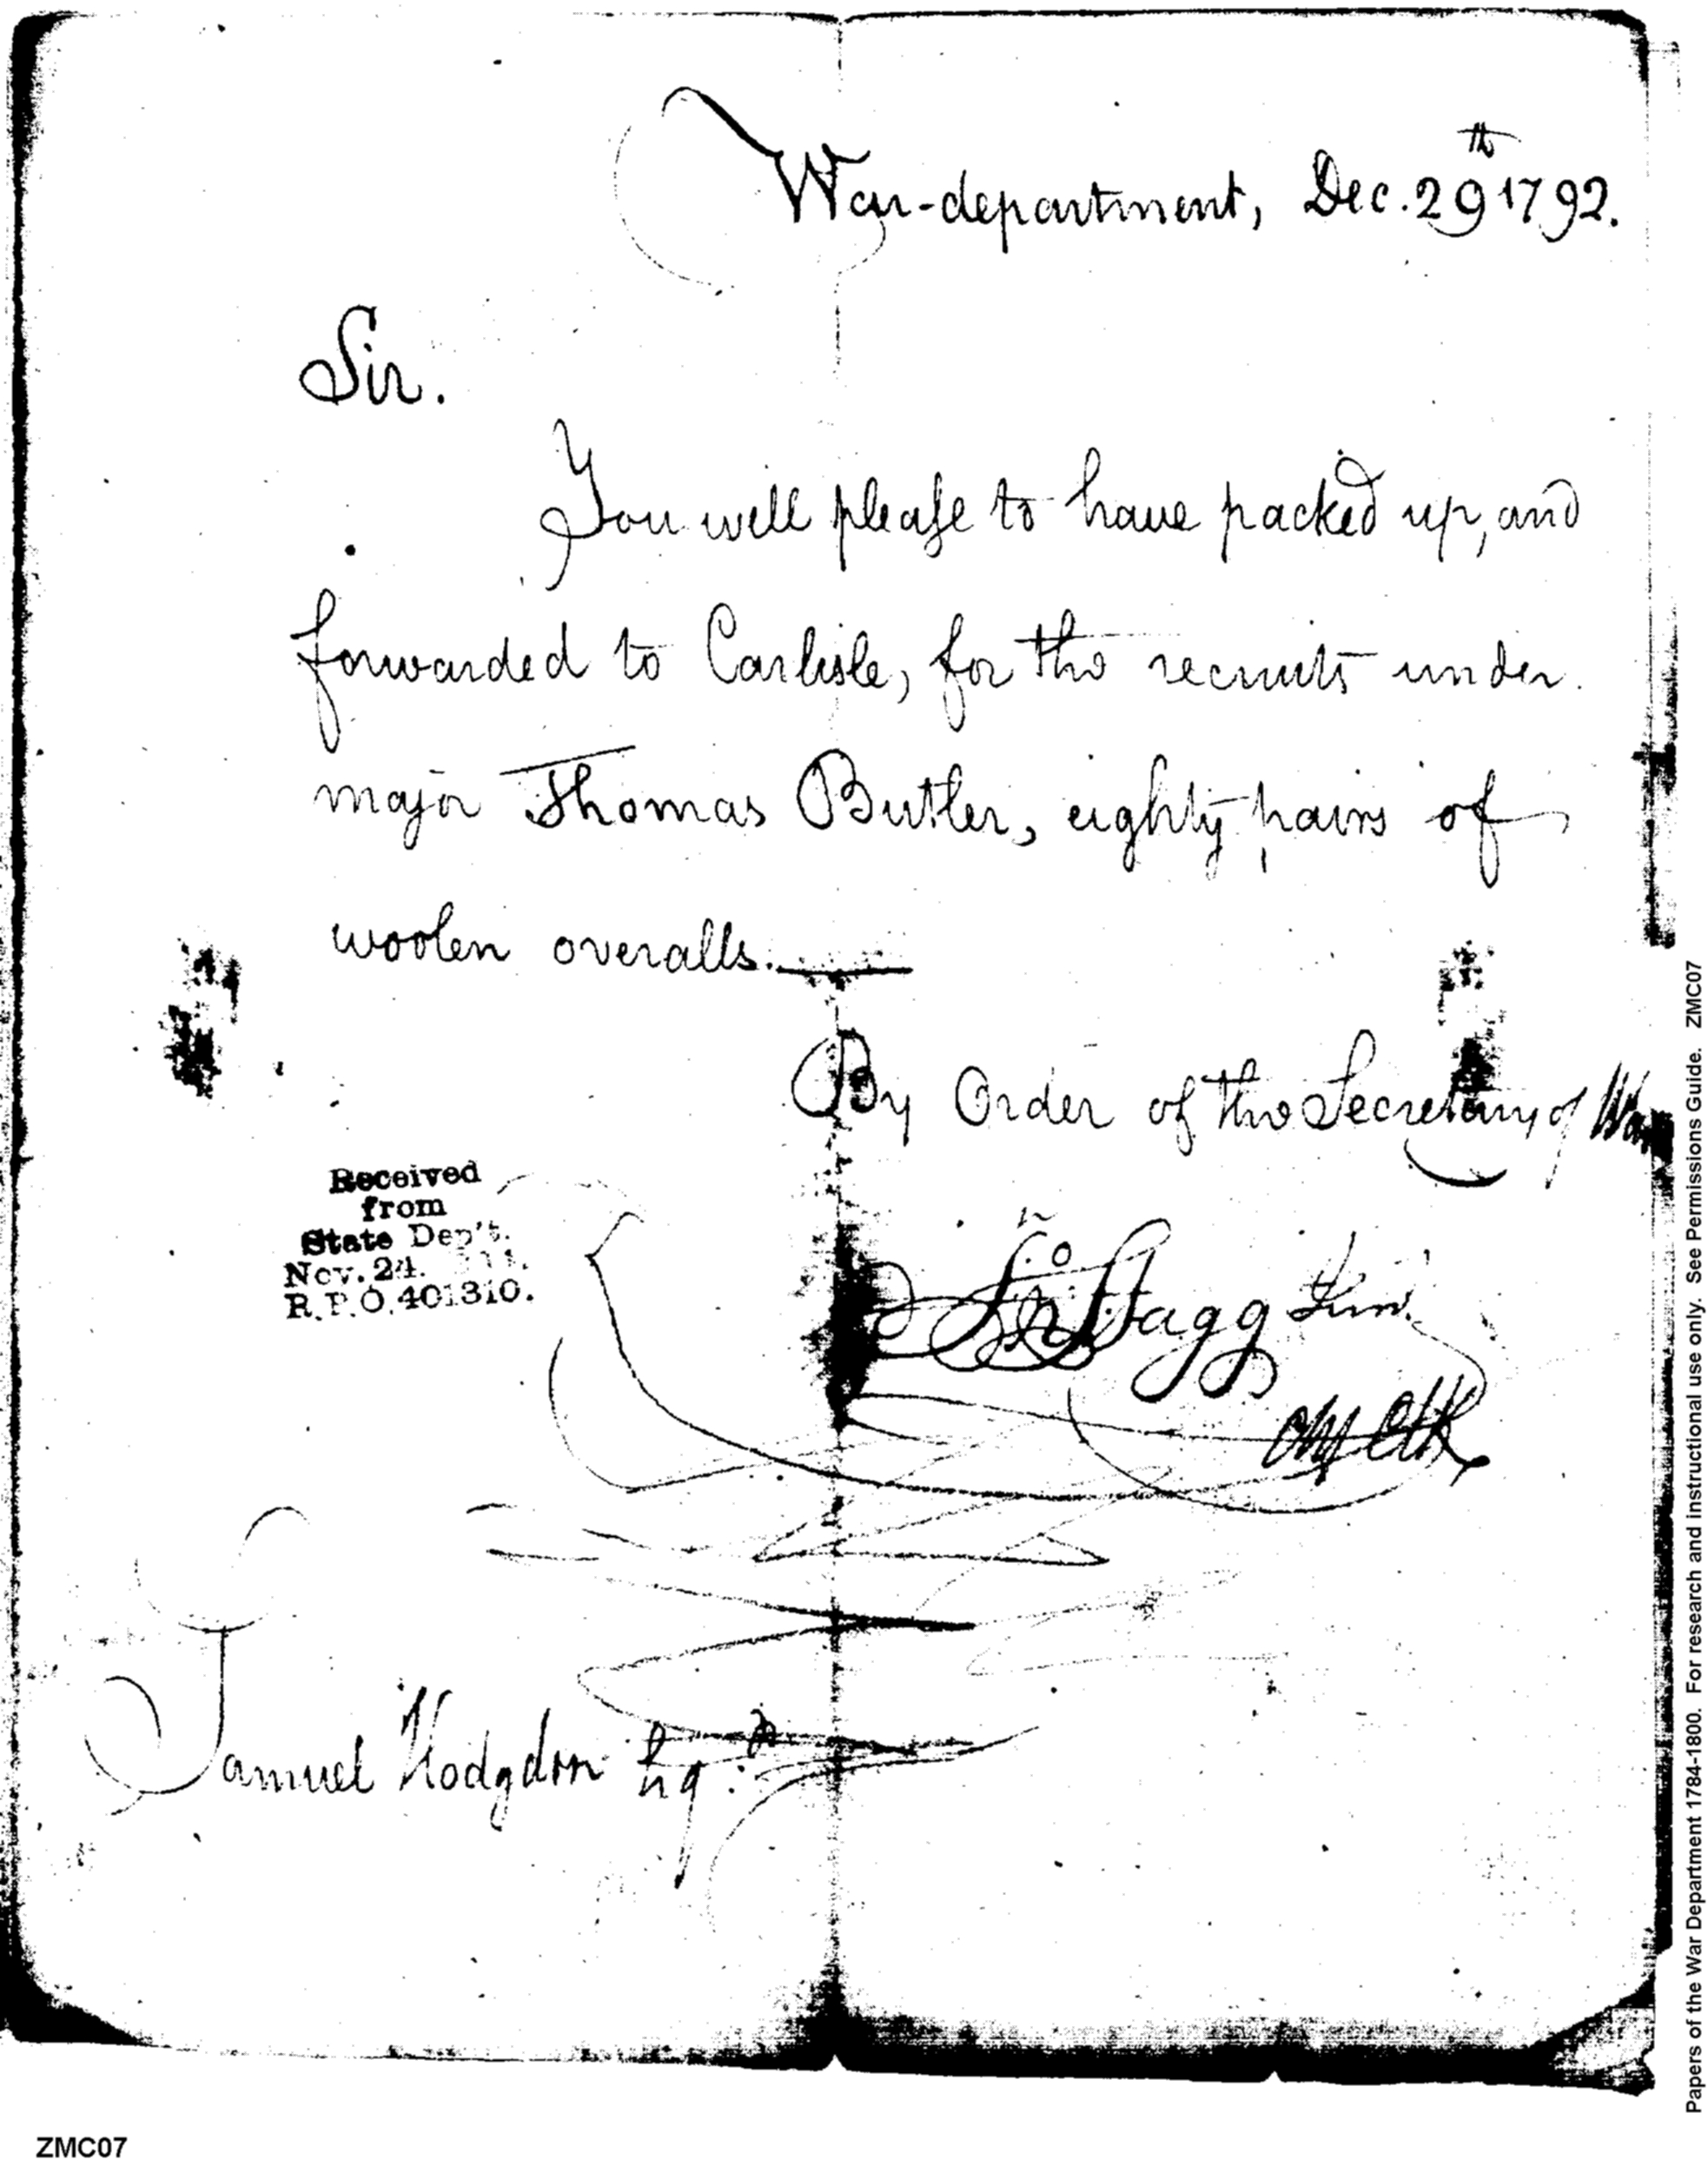 War-department, Dec. 29th 1792.
Sir.
You will please to have packed up, and
forwarded to Carlisle, for the recruits under
major Thomas Butler, eighty pairs of
woolen overalls.
By Order of the Secretary of War
Jno Stagg Jun.
Chf Clk
Received
from
State Dep't.
Nov. 24.
R.P.O. 401310.
Samuel Hodgdon Esqr.
Papers of the War Department 1784-1800. For research and instructional use only. See Permissions Guide. ZMC07
ZMC07